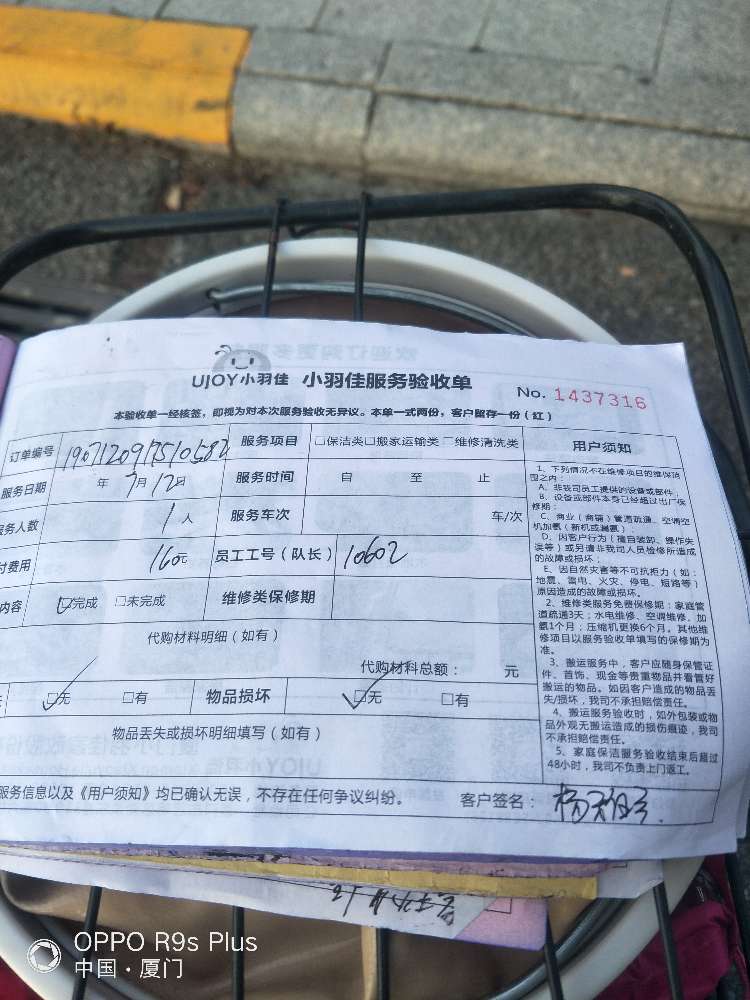 UJOY小羽佳 小羽佳服务验收单 No. 1437316
本验收单一经核签，即视为对本次服务验收无异议。本单一式两份，客户留存一份（红）
订单编号 服务项目 □保洁类□搬家运输类□维修清洗类
服务日期 年 7月12日 服务时间 自 至 止
务人数 1人 服务车次 车/次
付费用 160元 员工工号（队长） 10602
内容 ☑完成 □未完成 维修类保修期
代购材料明细（如有）
代购材料总额： 元
☑无 □有 物品损坏 ☑无 □有
物品丢失或损坏明细填写（如有）
服务信息以及《用户须知》均已确认无误，不存在任何争议纠纷。 客户签名：
用户须知
1、下列情况不在维修项目的维保范
围之内：
A、非我司员工提供的设备或部件；
B、设备或部件本身已经超过出厂保
修期；
C、商业（商铺）管道疏通、空调空
机加氨（新机或漏氨）；
D、因客户行为（擅自装卸、操作失
误等）或另请非我司人员检修所造成
的故障或损坏；
E、因自然灾害等不可抗拒力（如：
地震、雷电、火灾、停电、短路等）
原因造成的故障或损坏。
2、维修类服务免费保修期：家庭管
道疏通3天；水电维修、空调维修、加
氨1个月；压缩机更换6个月。其他维
修项目以服务验收单填写的保修期为
准。
3、搬运服务中，客户应随身保管证
件、首饰、现金等贵重物品并看管好
搬运的物品。如因客户造成的物品丢
失/损坏，我司不承担赔偿责任。
4、搬运服务验收时，如外包装或物
品外观无搬运造成的损伤痕迹，我司不
承担赔偿责任。
5、家庭保洁服务验收结束后超过
48小时，我司不负责上门返工。
OPPO R9s Plus
中国·厦门